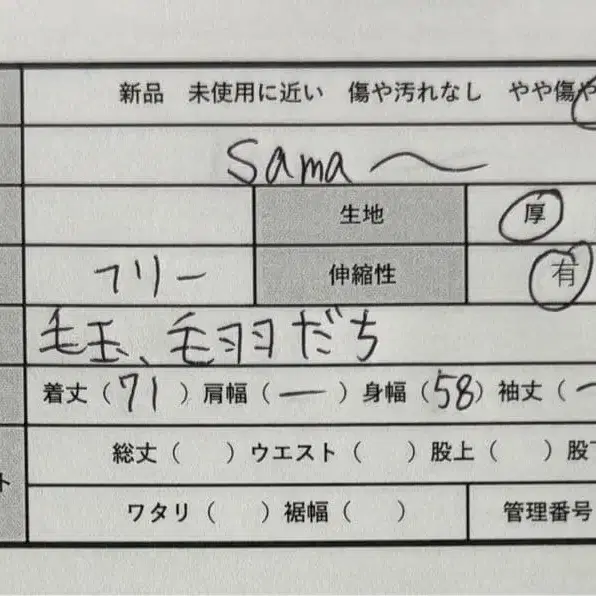 新品 未使用に近い 傷や汚れなし やや傷や
Sama〜
生地 厚
フリー 伸縮性 有
毛玉、毛羽だち
着丈（71）肩幅（ー）身幅（58）袖丈（ー
総丈（ ）ウエスト（ ）股上（ ）股下
ト
ワタリ（ ）裾幅（ ） 管理番号